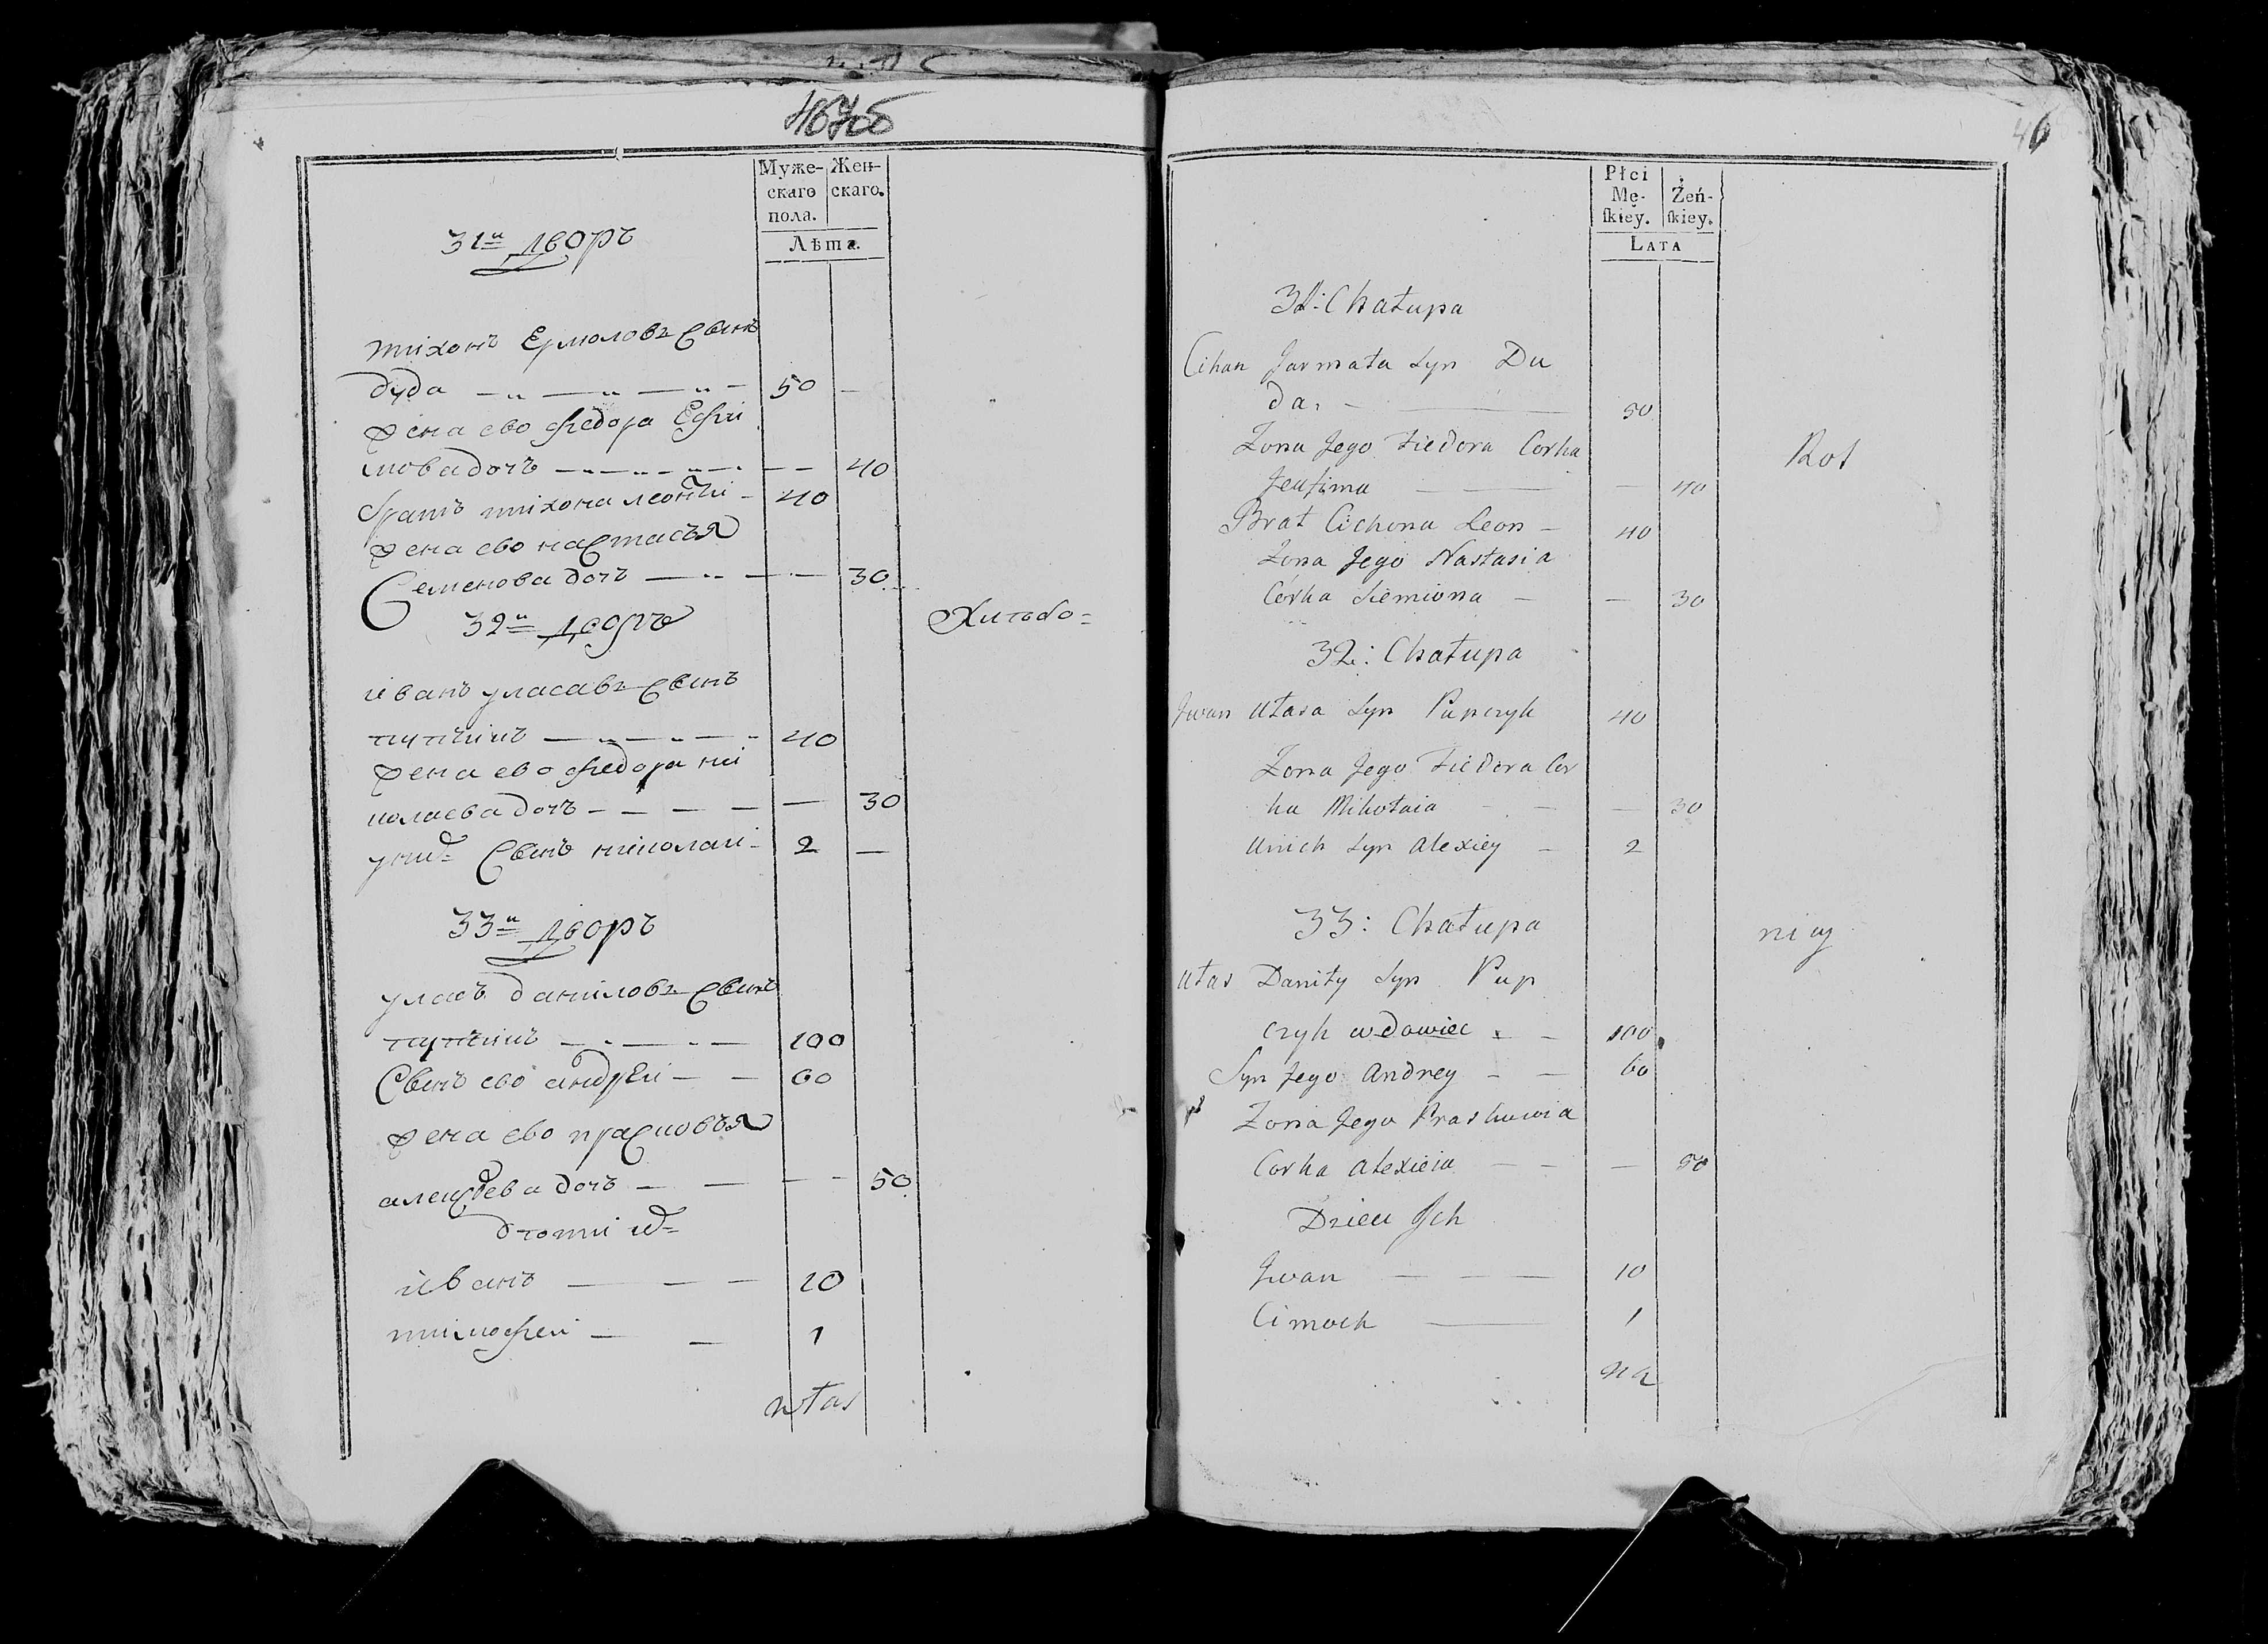 Муже-
скаго
пола.
Жен-
скаго.
Лѣта.
31й дворъ
тихонъ Ермоловъ сынъ
дуда 50 —
жена ево федора Ефи
мова дочъ — 40
братъ тихона леонти 40
жена ево настасъя
Семенова дочъ — 30
32й дворъ
иванъ уласавъ сынъ
40
жена ево федора ни
колаева дочъ — 30
сынъ николаи 2 —
33й дворъ
уласъ даниловъ сынъ
100
сынъ ево андреи 60
жена ево прасковъя
алексѣева дочъ — 50
иванъ 10
тимофеи 1
utas
46
Płci
Mę-
ſkiey.
Żeń-
ſkiey.
LATA
31: Chałupa
Cihan Jarmała Syn Du
da. 50
Zona Jego Fiedora Corka
Jeufima — 40
Rol
Brat Cichona Leon — 40
Zona Jego Nastasia
Córka Siemiona — — 30
32: Chałupa
Jwan Ułasa Syn Pupczyk 40
Zona Jego Fiedora Cor
ka Mikołaia — — 30
Unich Syn Alexiey — 2
33: Chałupa
nicy
Ułas Daniły Syn Pup
czyk wdowiec 100
Syn Jego Andrey — — 60
Zona Jego Praskowia
Corka Alexieia — — — 50
Dzieci Jch
Jwan — — — 10
Cimoch — 1
na